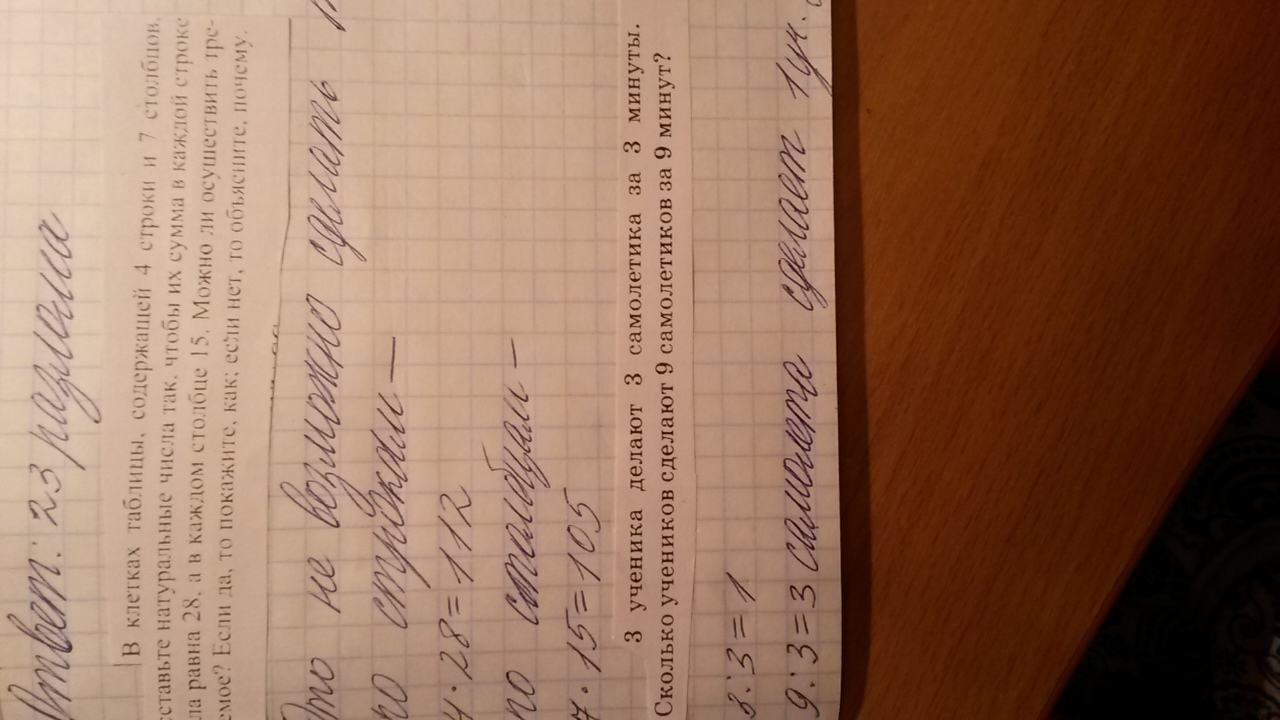 Ответ: 23 разлома
В клетках таблицы, содержащей 4 строки и 7 столбцов,
ставьте натуральные числа так, чтобы их сумма в каждой строке
ла равна 28, а в каждом столбце 15. Можно ли осуществить тре-
емое? Если да, то покажите, как; если нет, то объясните, почему.
Это не возможно сделать
по строкам –
4 · 28 = 112
по столбцам –
7 · 15 = 105
3 ученика делают 3 самолетика за 3 минуты.
Сколько учеников сделают 9 самолетиков за 9 минут?
3 : 3 = 1
9 : 3 = 3 самолета сделает 1 уч.